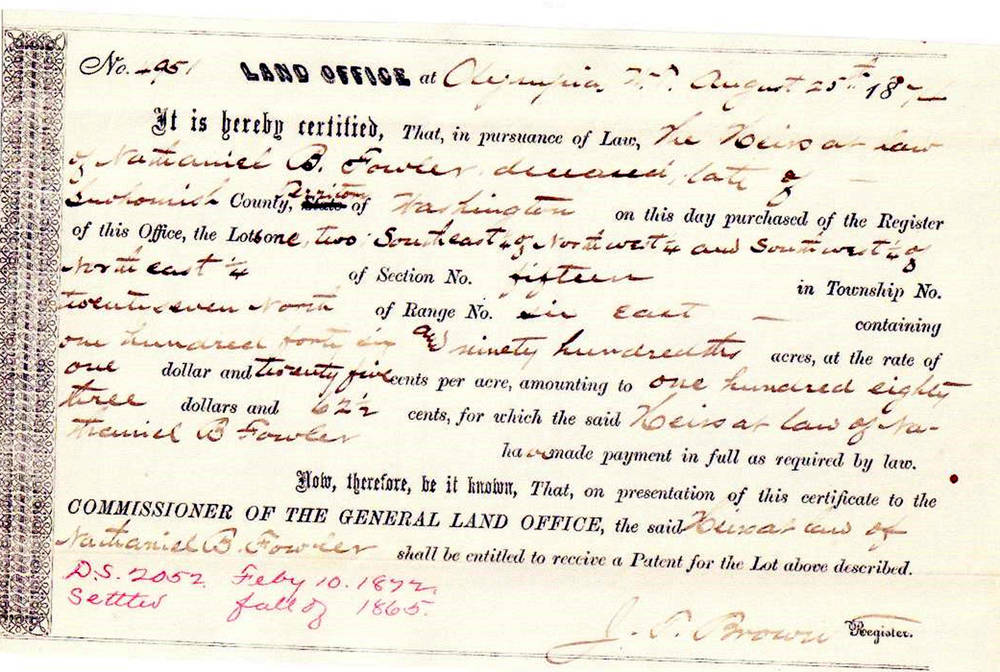 No. 4951 LAND OFFICE at Olympia, W.T. August 25th 187
It is hereby certified, That, in pursuance of Law, the Heirs at law
of Nathaniel B. Fowler, deceased, late of
Snohomish County, Territory State of Washington on this day purchased of the Register
of this Office, the Lots one, two Southeast 1/4 of Northwest 1/4 and Southwest 1/4 of
Northeast 1/4 of Section No. fifteen in Township No.
twenty seven North of Range No. six East containing
one hundred forty six and ninety hundredths acres, at the rate of
one dollar and twenty five cents per acre, amounting to one hundred eighty
three dollars and 62 1/2 cents, for which the said Heirs at law of Na-
thaniel B Fowler
have made payment in full as required by law.
Now, therefore, be it known, That, on presentation of this certificate to the
COMMISSIONER OF THE GENERAL LAND OFFICE, the said Heirs at law of
Nathaniel B. Fowler shall be entitled to receive a Patent for the Lot above described.
D.S. 2052. Feby 10. 1872.
Settled fall of 1865.
J. P. Brown Register.